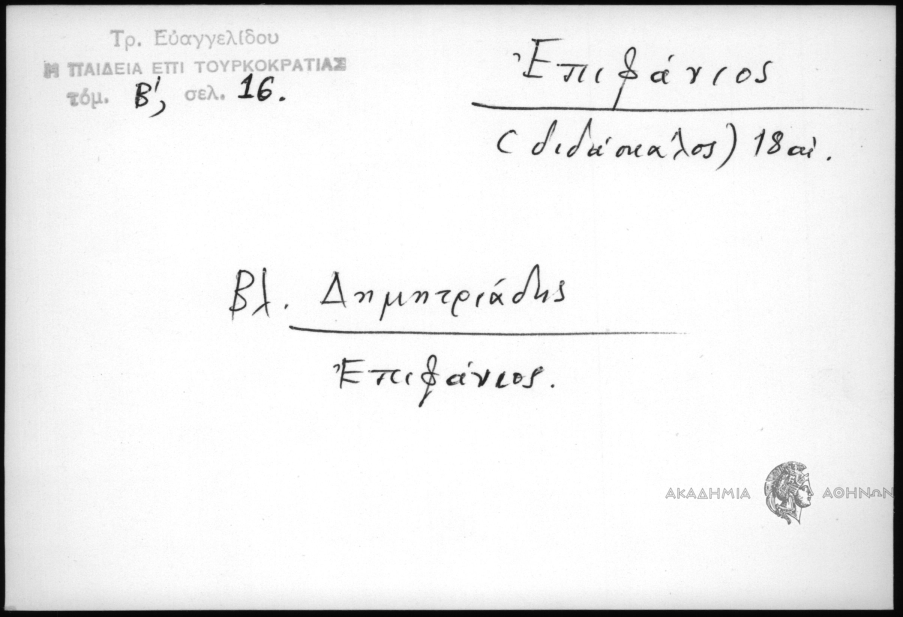 Τρ. Εὐαγγελίδου
Η ΠΑΙΔΕΙΑ ΕΠΙ ΤΟΥΡΚΟΚΡΑΤΙΑΣ
τόμ. Β', σελ. 16.
Ἐπιφάνιος
(διδάσκαλος) 18 αἰ.
Βλ. Δημητριάδης
Ἐπιφάνιος.
ΑΚΑΔΗΜΙΑ ΑΘΗΝΩΝ